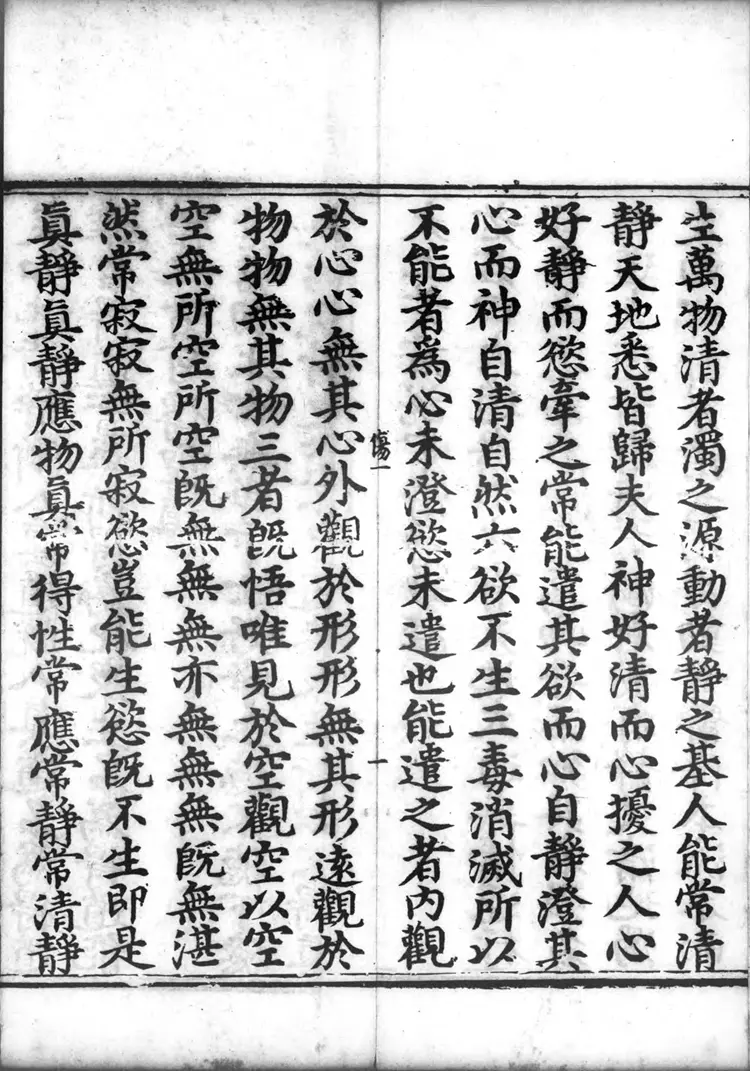 生萬物清者濁之源動者靜之基人能常清
靜天地悉皆歸夫人神好清而心擾之人心
好靜而慾牽之常能遣其欲而心自靜澄其
心而神自清自然六欲不生三毒消滅所以
不能者為心未澄慾未遣也能遣之者內觀
傷一
一
於心心無其心外觀於形形無其形遠觀於
物物無其物三者旣悟唯見於空觀空以空
空無所空所空旣無無無亦無無無旣無湛
然常寂寂無所寂慾豈能生慾旣不生即是
眞靜眞靜應物眞常得性常應常靜常清靜